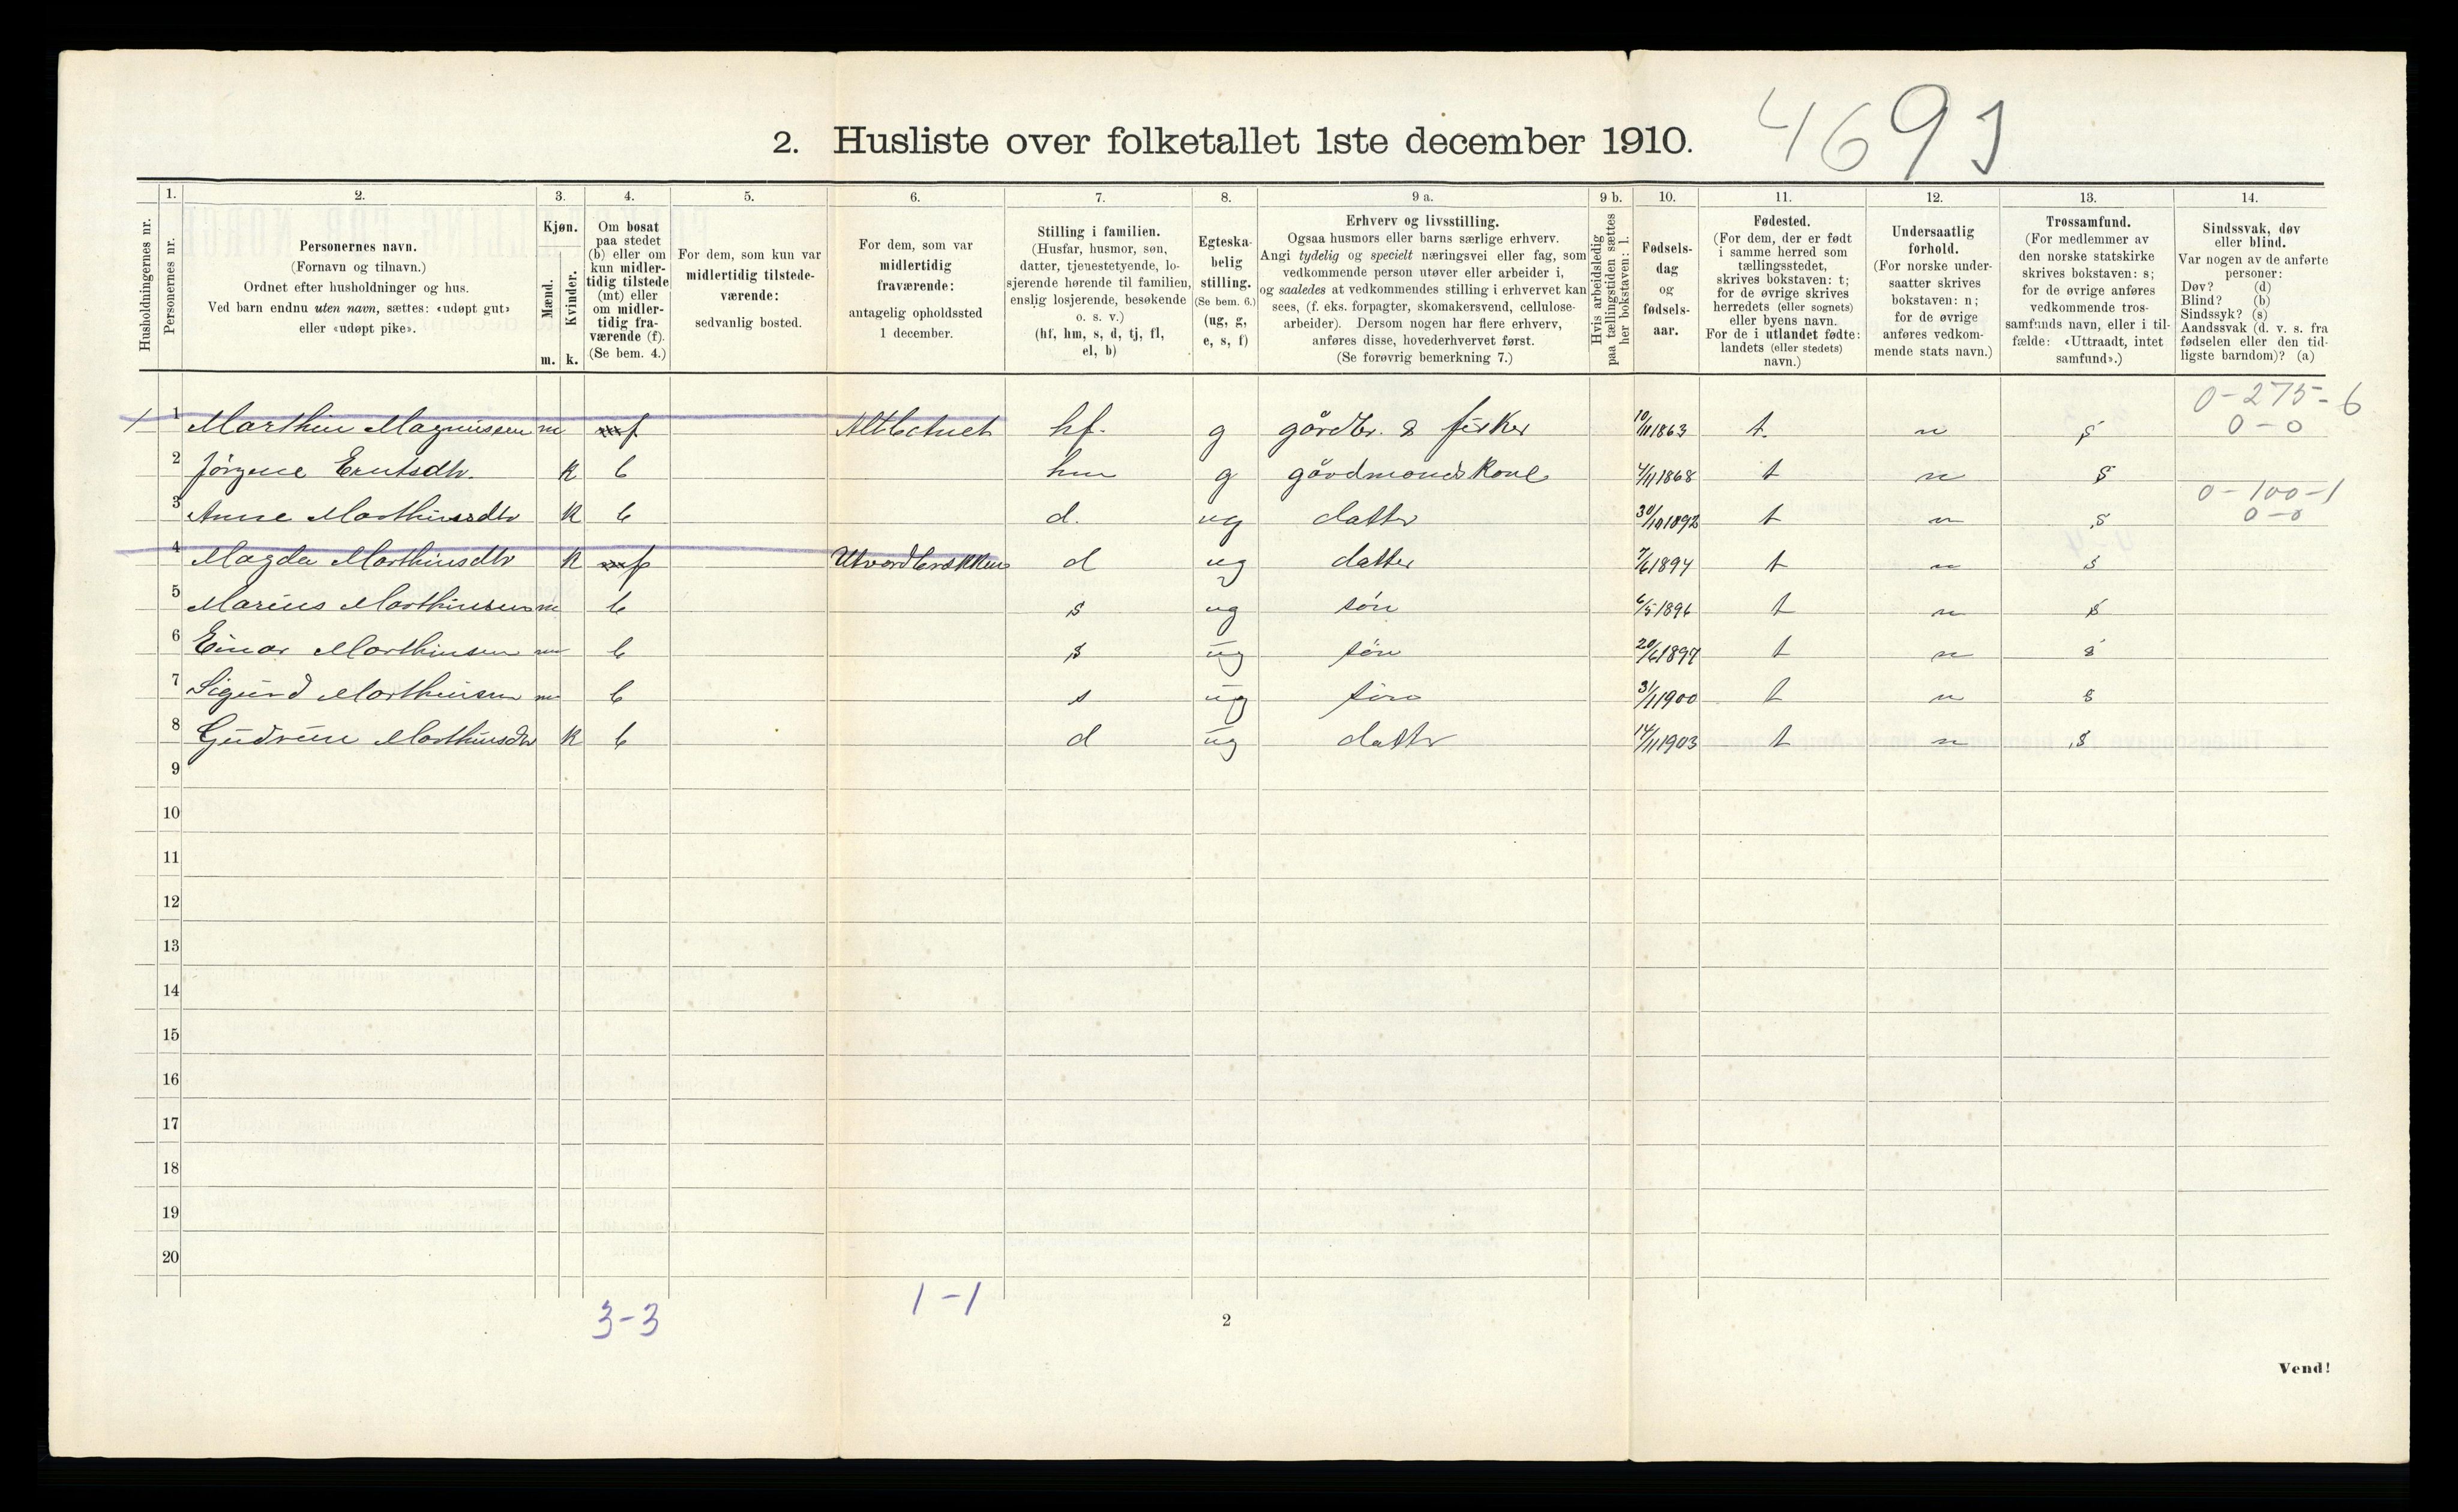 2. Husliste over folketallet 1ste december 1910. 469
Husholdningernes nr.
1. Personernes nr.
2. Personernes navn. (Fornavn og tilnavn.) Ordnet efter husholdninger og hus. Ved barn endnu uten navn, sættes: «udøpt gut» eller «udøpt pike».
3. Kjøn. Mænd. m. Kvinder. k.
4. Om bosat paa stedet (b) eller om kun midler-tidig tilstede (mt) eller om midler-tidig fra-værende (f). (Se bem. 4.)
5. For dem, som kun var midlertidig tilstede-værende: sedvanlig bosted.
6. For dem, som var midlertidig fraværende: antagelig opholdssted 1 december.
7. Stilling i familien. (Husfar, husmor, søn, datter, tjenestetyende, lo-sjerende hørende til familien, enslig losjerende, besøkende o. s. v.) (hf, hm, s, d, tj, fl, el, b)
8. Egteska-belig stilling. (Se bem. 6.) (ug, g, e, s, f)
9 a. Erhverv og livsstilling. Ogsaa husmors eller barns særlige erhverv. Angi tydelig og specielt næringsvei eller fag, som vedkommende person utøver eller arbeider i, og saaledes at vedkommendes stilling i erhvervet kan sees, (f. eks. forpagter, skomakersvend, cellulose-arbeider). Dersom nogen har flere erhverv, anføres disse, hovederhvervet først. (Se forøvrig bemerkning 7.)
9 b. Hvis arbeidsledig paa tællingstiden sættes her bokstaven: l.
10. Fødsels-dag og fødsels-aar.
11. Fødested. (For dem, der er født i samme herred som tællingsstedet, skrives bokstaven: t; for de øvrige skrives herredets (eller sognets) eller byens navn. For de i utlandet fødte: landets (eller stedets) navn.)
12. Undersaatlig forhold. (For norske under-saatter skrives bokstaven: n; for de øvrige anføres vedkom-mende stats navn.)
13. Trossamfund. (For medlemmer av den norske statskirke skrives bokstaven: s; for de øvrige anføres vedkommende tros-samfunds navn, eller i til-fælde: «Uttraadt, intet samfund».)
14. Sindssvak, døv eller blind. Var nogen av de anførte personer: Døv? (d) Blind? (b) Sindssyk? (s) Aandssvak (d. v. s. fra fødselen eller den tid-ligste barndom)? (a)
0-275-6
1 1 Marthin Magnussen m f hf. g gårdbr. & fisker 10/11 1863 t. n s 0-0
2 Jørgine k b hm g gårdmands kone 4/11 1868 t n s
0-100-1
3 Anne Marthinsdtr k b d. ug datter 30/10 1892 t n s 0-0
4 Magda Marthinsdtr k f d ug datter 7/6 1894 t n s
5 Marius Marthinsen m b s ug søn 6/5 1896 t n s
6 Einar Marthinsen m b s ug søn 20/6 1897 t n s
7 Sigurd Marthinsen m b s ug søn 31/1 1900 t n s
8 Gudrun Marthinsdtr k b d ug datter 14/11 1903 t n s
9
10
11
12
13
14
15
16
17
18
19
20
3-3 1-1
2
Vend!